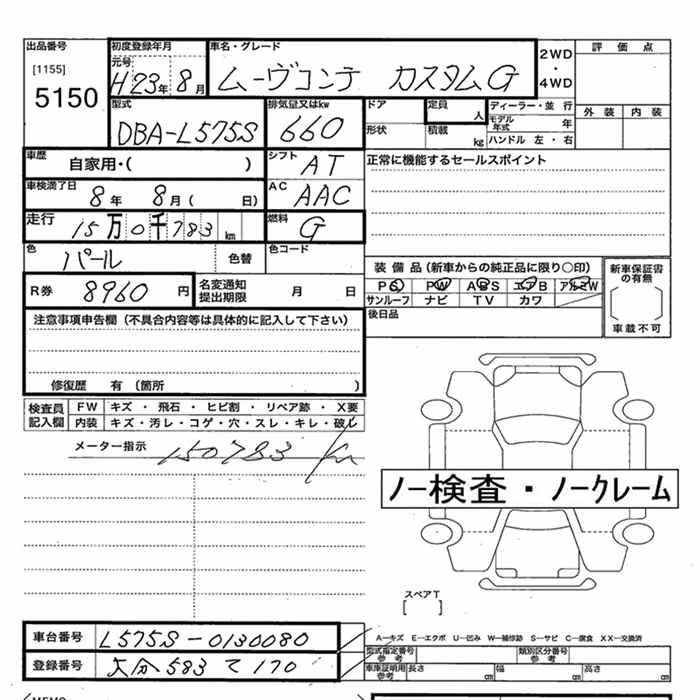 出品番号 初度登録年月 車名・グレード 2WD・4WD 評価点
[1155] 元号
5150 H23年8月 ムーヴコンテ カスタムG
型式 排気量又はkw ドア 定員 人 ディーラー・並行 外装 内装
DBA-L575S 660 形状 積載 kg モデル年式 年
ハンドル 左・右
車歴 自家用・( ) シフト AT 正常に機能するセールスポイント
車検満了日 8年 8月( 日) AC AAC
走行 15万0千783km 燃料 G
色 パール 色替 色コード
装備品(新車からの純正品に限り○印) 新車保証書の有無
R券 8960円 名変通知提出期限 月 日 PS PW ABS エアB アルミW
サンルーフ ナビ TV カワ
後日品 車載不可
注意事項申告欄(不具合内容等は具体的に記入して下さい)
修復歴 有(箇所 )
検査員記入欄 FW キズ・飛石・ヒビ割・リペア跡・X要
内装 キズ・汚レ・コゲ・穴・スレ・キレ・破レ
メーター指示 150783 km
ノー検査・ノークレーム
スペアT
[ ]
車台番号 L575S-0130080
A-キズ E-エクボ U-凹み W-補修跡 S-サビ C-腐食 XX-交換済
登録番号 大分 583 て 170
型式指定番号 参考 類別区分番号 参考
車庫証明用 参考 長さ cm 幅 cm 高さ cm